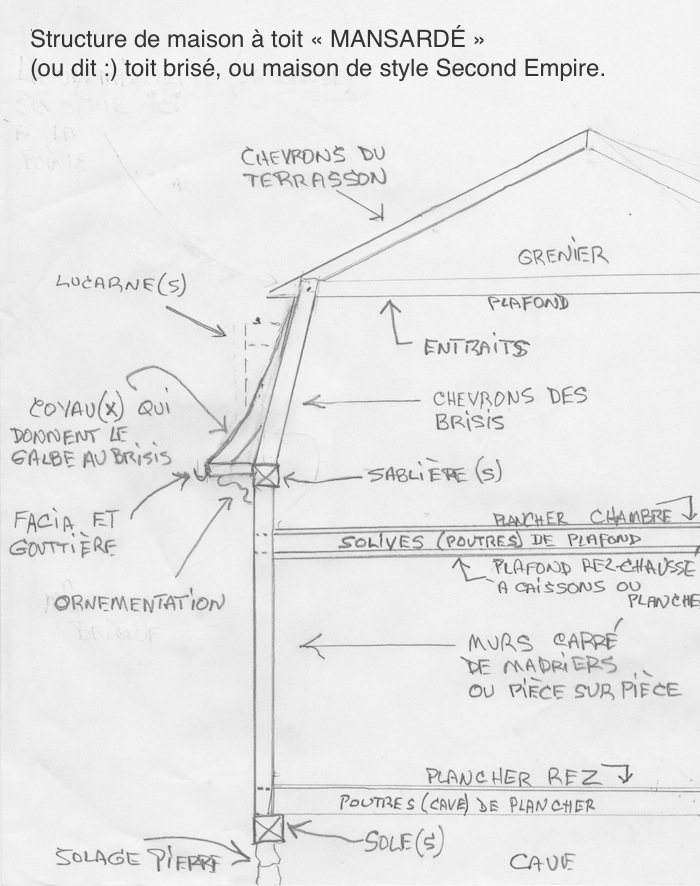 Structure de maison à toit « MANSARDÉ »
(ou dit :) toit brisé, ou maison de style Second Empire.
CHEVRONS DU
TERRASSON
GRENIER
LUCARNE(S)
PLAFOND
ENTRAITS
COYAU(X) QUI
DONNENT LE
GALBE AU BRISIS
CHEVRONS DES
BRISIS
SABLIÈRE(S)
FACIA ET
GOUTTIÈRE
PLANCHER CHAMBRE
SOLIVES (POUTRES) DE PLAFOND
PLAFOND REZ-CHAUSSE
A CAISSONS OU
PLANCHE
ORNEMENTATION
MURS CARRÉ
DE MADRIERS
OU PIÈCE SUR PIÈCE
PLANCHER REZ
POUTRES (CAVE) DE PLANCHER
SOLE(S)
SOLAGE PIERRE
CAVE